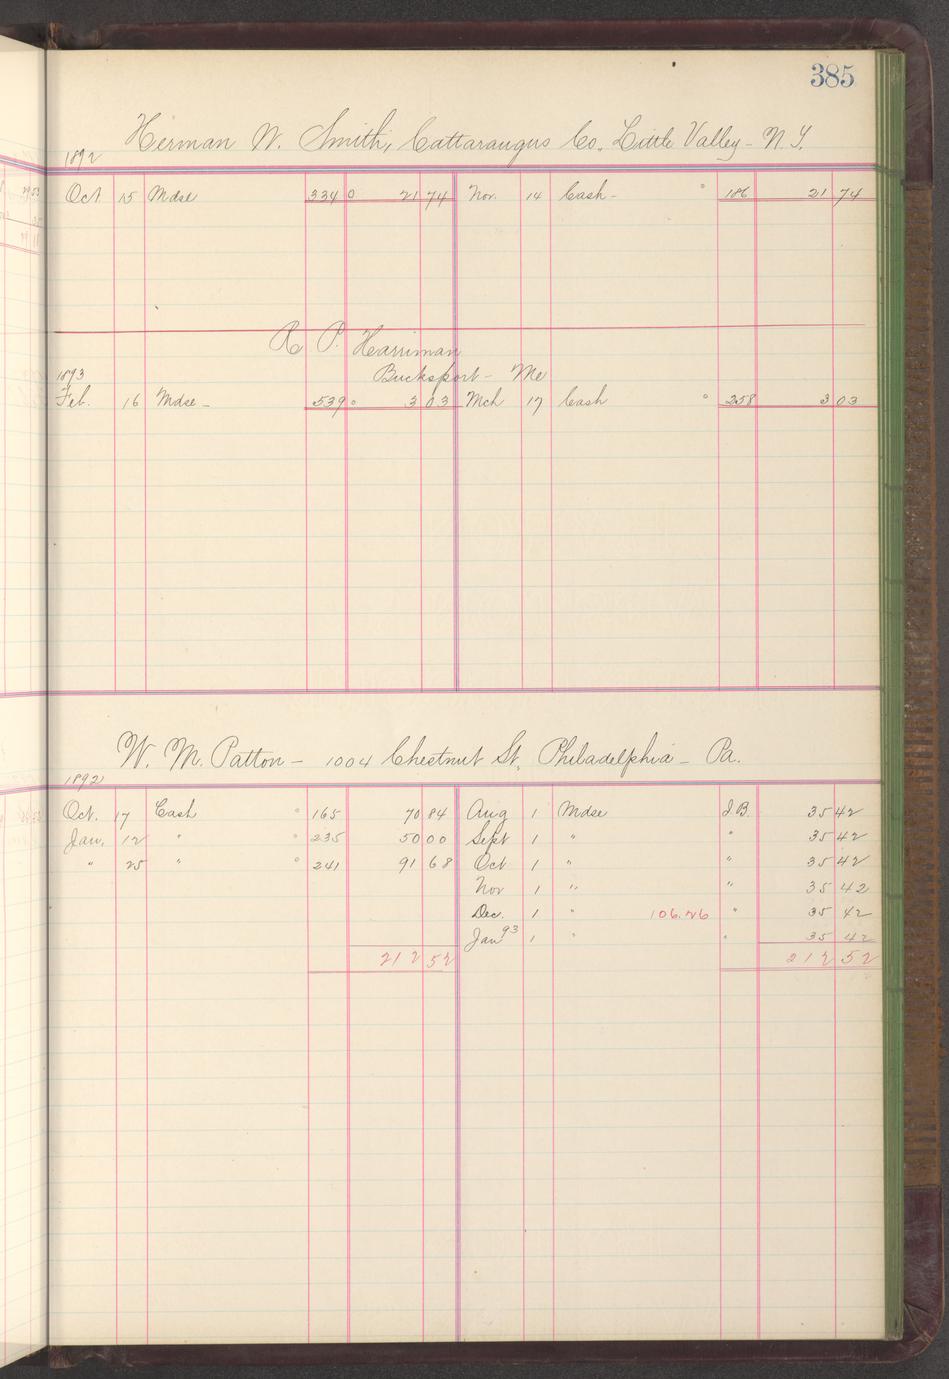 385
Herman W. Smith, Cattaraugus Co. Little Valley - N.Y.
1892
Oct 15 Mdse 334 0 21 74 Nov. 14 Cash - ° 186 21 74
R P. Harriman
Bucksport - Me
1893
Feb. 16 Mdse - 539 ° 3 03 Mch 17 Cash ° 258 3 03
W. M. Patton - 1004 Chestnut St, Philadelphia - Pa.
1892
Oct. 17 Cash ° 165 70 84 Aug 1 Mdse J.B. 35 42
Jan. 12 " ° 235 50 00 Sept 1 " " 35 42
" 25 " ° 241 91 68 Oct 1 " " 35 42
Nov 1 " " 35 42
Dec. 1 " 106.26 " 35 42
Jan 93 1 " " 35 42
212 52 212 52